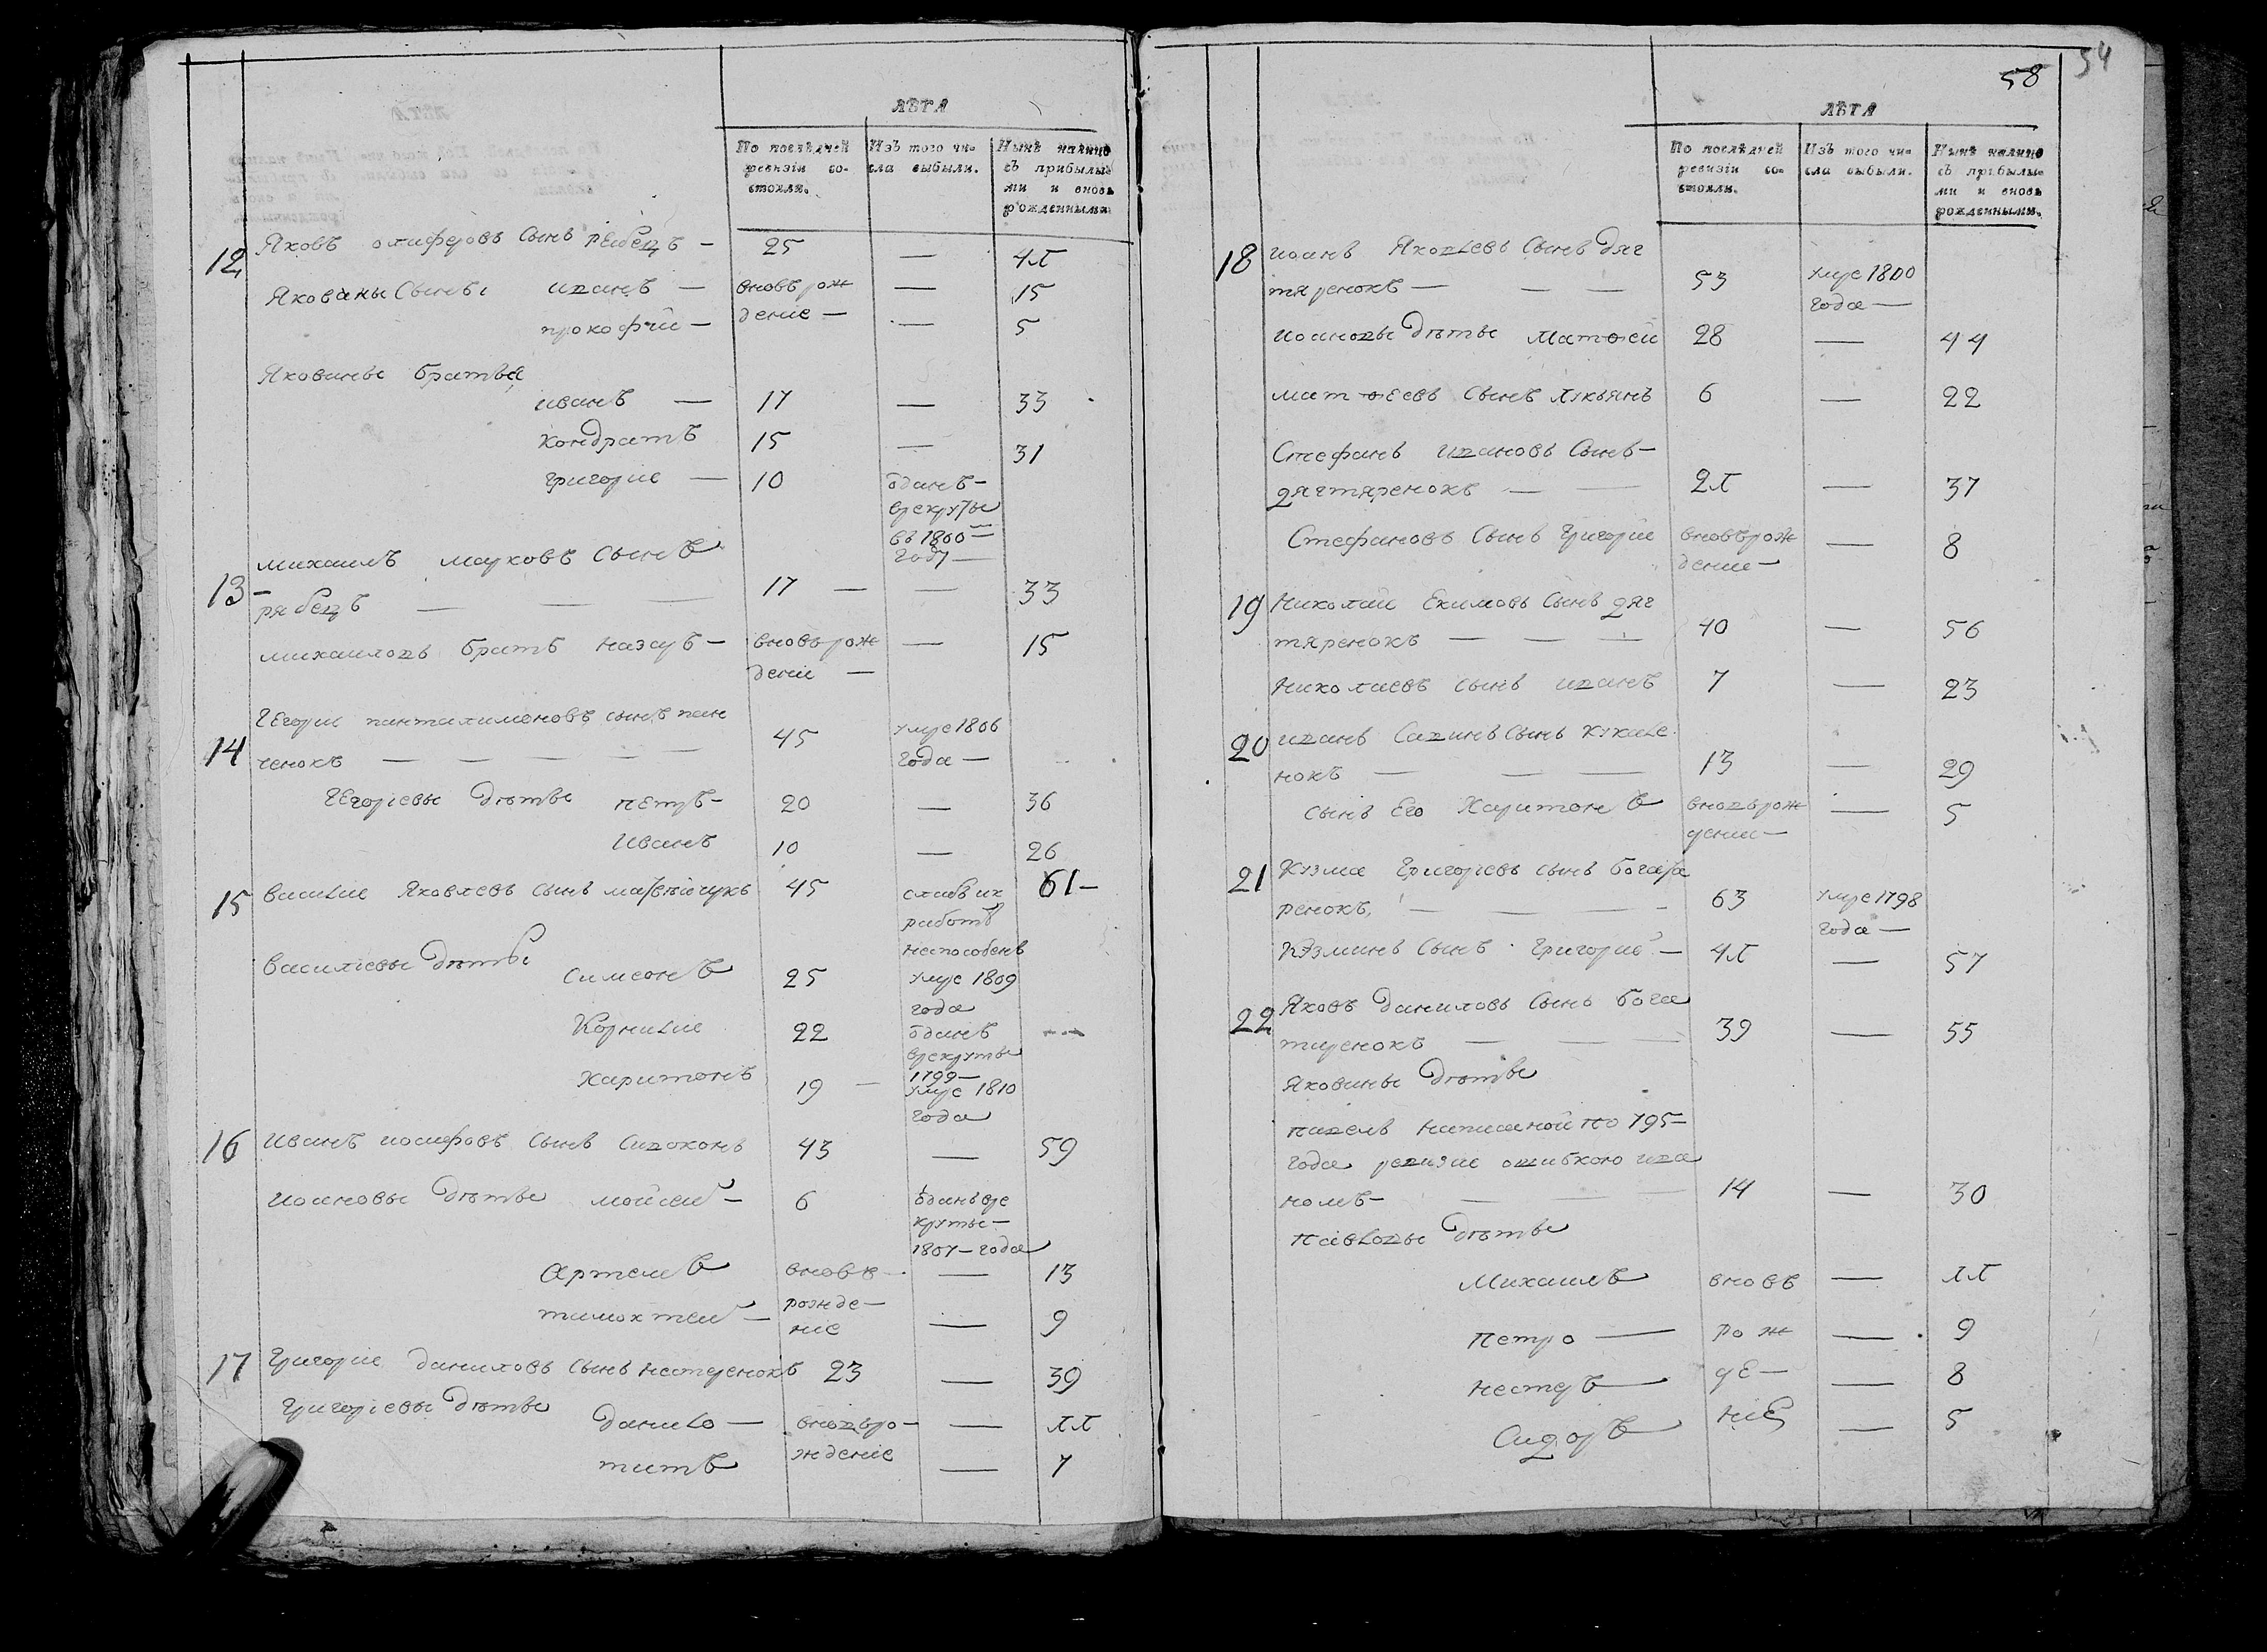 ЛѢТА
По послѣдней ревизіи состояли.
Изъ того числа выбыли.
Нынѣ налицо съ прибылыми и вновь рожденными.
12 Яковъ олиферовъ Сынъ рябецъ — 25 — 41
иванъ — вновъ рож — 15
прокофий — дение — — 5
Яковины братья
иванъ — 17 — 33
кондратъ 15 — 31
григорие — 10 одань —
врекруты
въ 1800 —
году —
13 михаилъ марковъ сынъ
рябецъ — — — 17 — — 33
михаиловъ братъ назаръ — вновь рож — 15
дение —
14 Георги пантилимоновъ сынъ пан
ченокъ — — — — 45 умре 1806
года —
Георгиевы дѣтье петръ — 20 — 36
Иванъ 10 — 26
15 василие Яковлевъ сынъ 45 61 —
работѣ
неспособенъ
василиевы дѣтье
симеонъ 25 умре 1809
года
Корнилие 22 оданъ
врекруты
1799 —
харитонъ 19 — умре 1810
года
16 Иванъ иосифовъ сынъ сивоконь 43 — 59
иоановы дѣтье моисей — 6 оданъ вре
круты —
1807 — года
Артемъ вновъ — — 13
тимохтей — рожде —
ние — 9
17 Григорие даниловъ сынъ нестеренокъ 23 — 39
Григориевы дѣтье
данило — вновъро — — 11
титъ ждение — 7
58
54
ЛѢТА
По послѣдней ревизіи состояли.
Изъ того числа выбыли.
Нынѣ налицо съ прибылыми и вновь рожденными.
18 иоанъ Яковлевъ сынъ дяг
тяренокъ — — — 53 умре 1800
года —
иоановы дѣтье матѳей 28 — 44
матѳеевъ сынъ лукьянъ 6 — 22
Стефанъ ивановъ сынъ —
дягтяренокъ — — 21 — 37
Стефановъ сынъ григорие вновърож
дение — — 8
19 Николай Екимовъ сынъ дяг
тяренокъ — — — 40 — 56
николаевъ сынъ иванъ 7 — 23
20 иванъ Савинъ сынъ
нокъ — — — 13 — 29
сынъ его харитонъ вновърож
дение — — 5
21 Кузма Григориевъ сынъ богати
ренокъ — — — 63 умре 1798
года —
Кузминъ сынъ григорие — 41 — 57
22 Яковъ даниловъ сынъ бога
тиренокъ — — — 39 — 55
Яковины дѣтье
павелъ написаной по 795 —
года ревизие ошибкою ива
номъ — — — — 14 — 30
павловы дѣтье
Михаилъ вновъ — 11
Петро — рож — 9
нестеръ — де — — 8
Сидоръ ние — 5